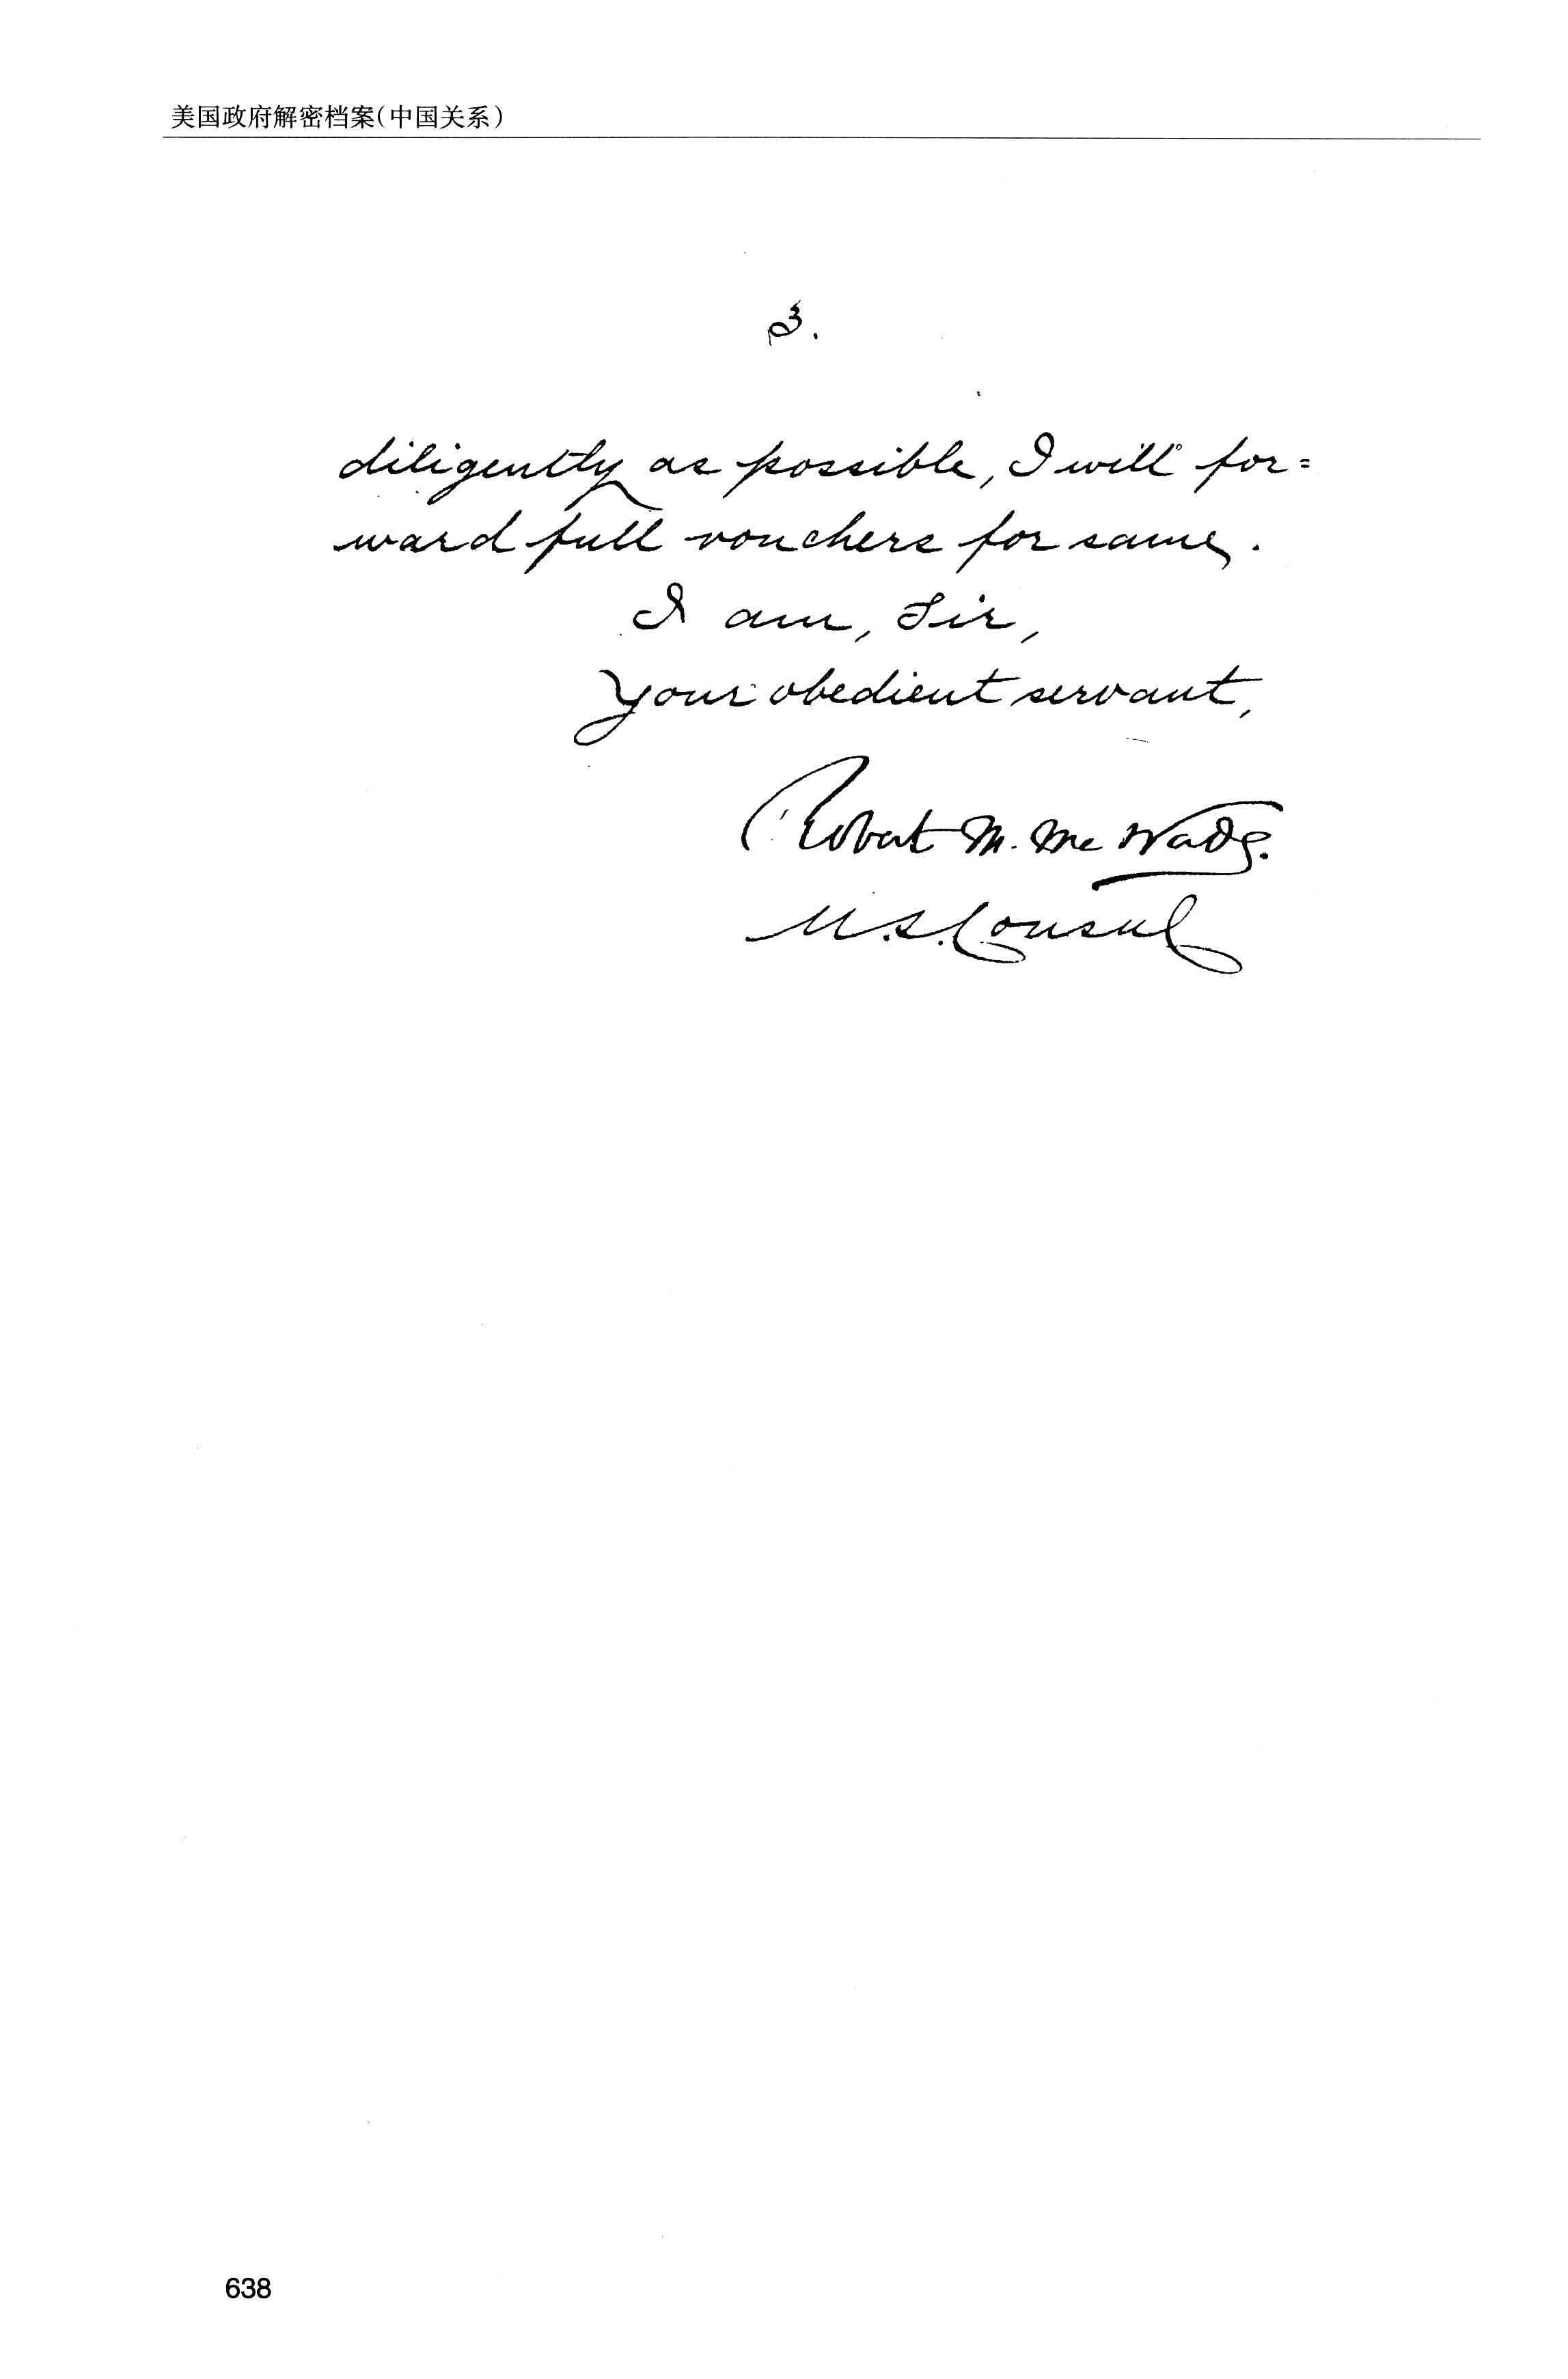 美国政府解密档案(中国关系)
3.
diligently as possible, I will for=
ward full vouchers for same.
I am, Sir,
Your obedient servant,
Robert M. McWade.
U.S. Consul
638